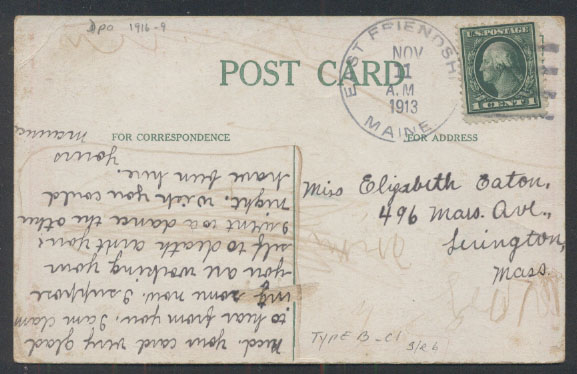 DPO 1916-9
POST CARD
EAST FRIENDSHIP
NOV
11
A.M
1913
MAINE
U.S. POSTAGE
1 CENT 1
FOR CORRESPONDENCE
FOR ADDRESS
Recd. your card very glad
to hear from you, I am clam
ing some now. I suppose
you are working your
self to death aint you
I went to a dance the other
night. wish you could
have been here.
Yours
Maurice
Miss Elizabeth Eaton,
496 Mass. Ave.,
Lexington,
Mass.
TYPE B-C1